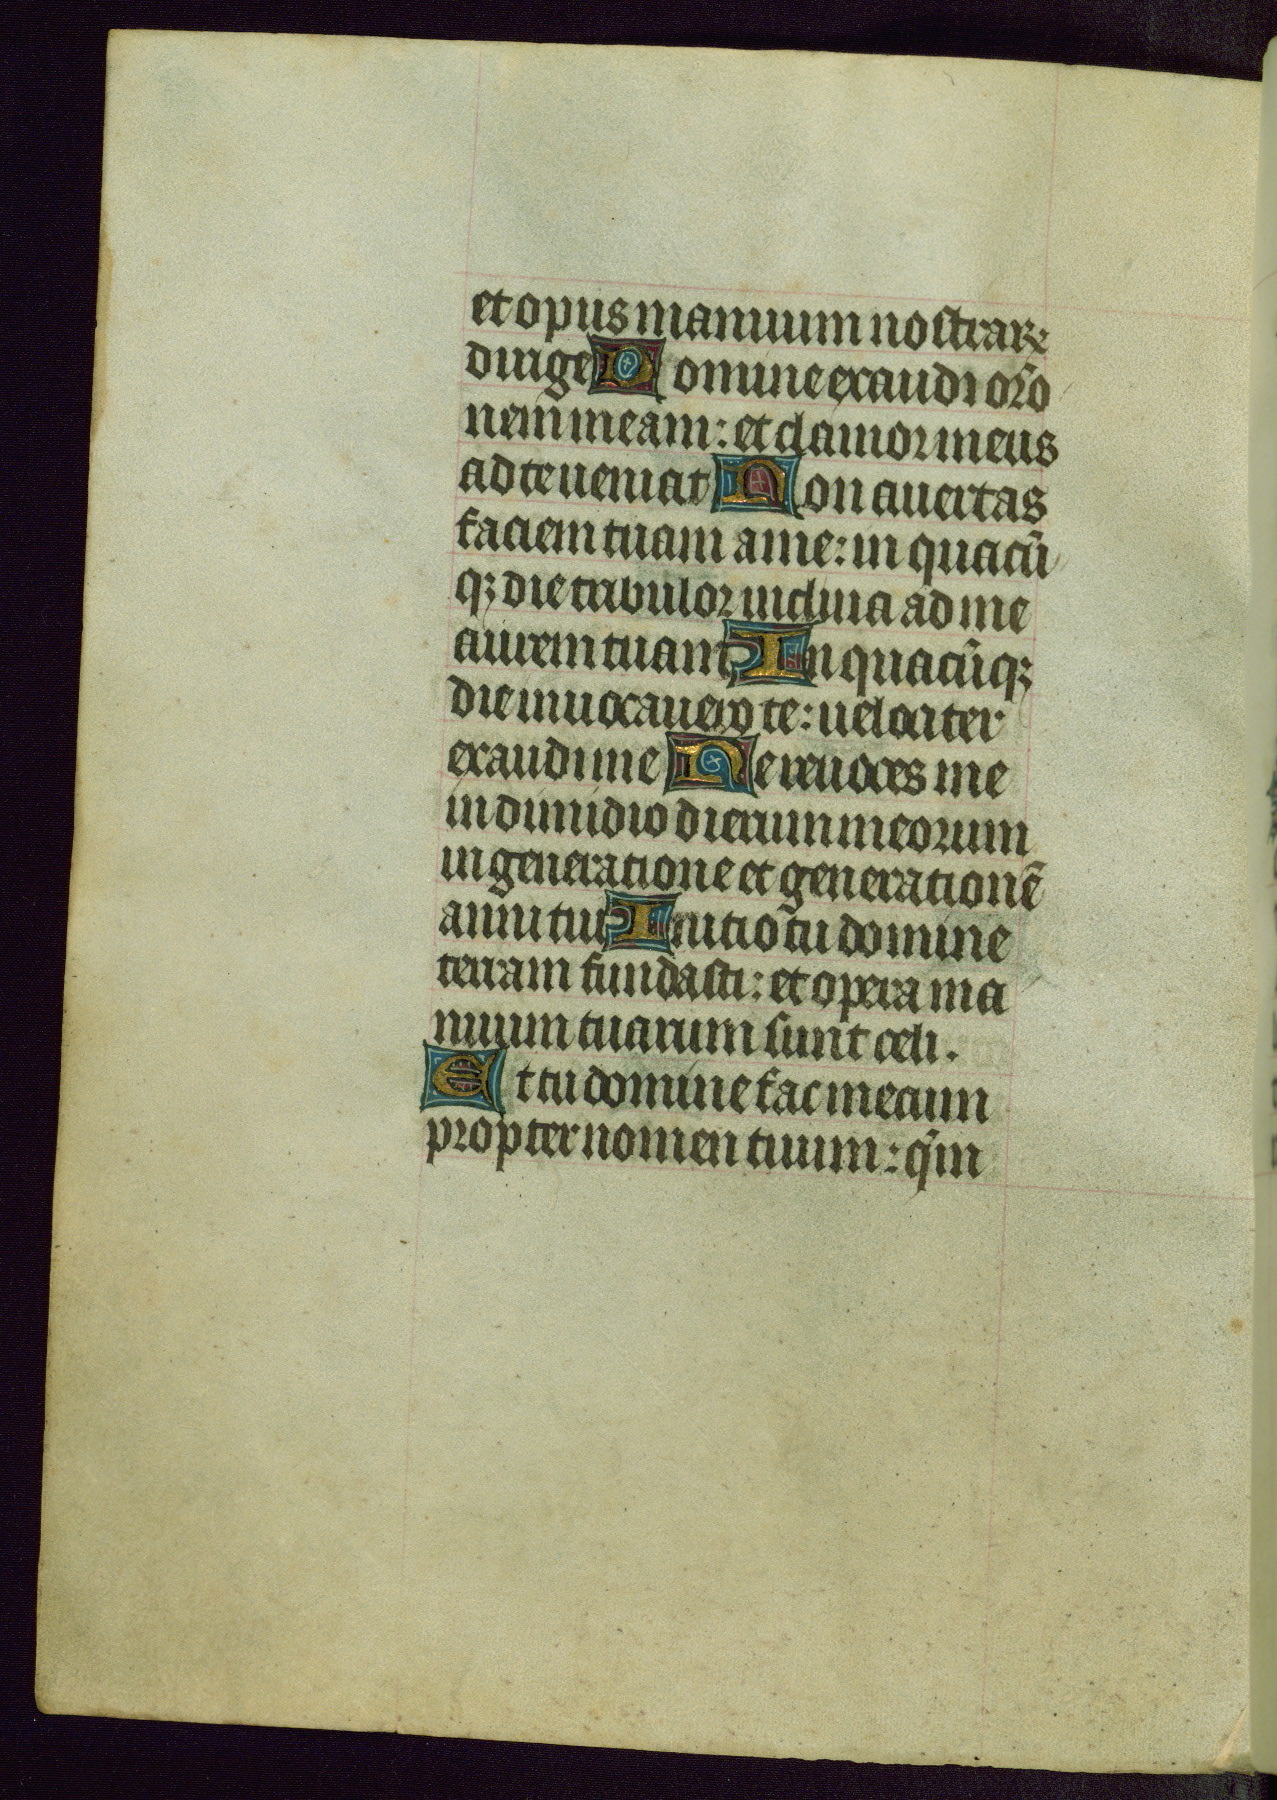 et opus manuum nostraꝝ
dirige Domine exaudi or̄o
nem meam: et clamor meus
ad te ueniat Non auertas
faciem tuam a me: in quacū
qꝫ die tribulor inclina ad me
aurem tuam In quacūqꝫ
die inuocauero te: uelociter
exaudi me Ne reuoces me
in dimidio dierum meorum
in generatione et generationē
anni tui Initio tu domine
terram fundasti: et opera ma
nuum tuarum sunt celi.
Et tu domine fac mecum
propter nomen tuum: qm̄